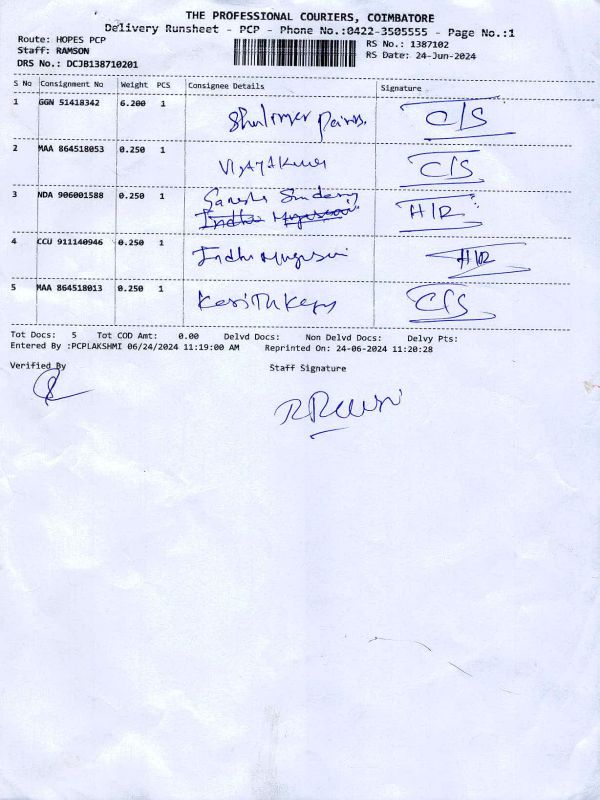 THE PROFESSIONAL COURIERS, COIMBATORE
Delivery Runsheet - PCP - Phone No.:0422-3505555 - Page No.:1
Route: HOPES PCP
RS No.: 1387102
Staff: RAMSON
RS Date: 24-Jun-2024
DRS No.: DCJB138710201
S No Consignment No Weight PCS Consignee Details Signature
1 GGN 51418342 6.200 1 Shalimar Paints. C/S
2 MAA 864518053 0.250 1 Vijayakumar C/S
3 NDA 906001588 0.250 1 Ganesh H/R
4 CCU 911140946 0.250 1 Indhu Murugesan H/R
5 MAA 864518013 0.250 1 C/S
Tot Docs: 5 Tot COD Amt: 0.00 Delvd Docs: Non Delvd Docs: Delvy Pts:
Entered By :PCPLAKSHMI 06/24/2024 11:19:00 AM Reprinted On: 24-06-2024 11:20:28
Verified By Staff Signature